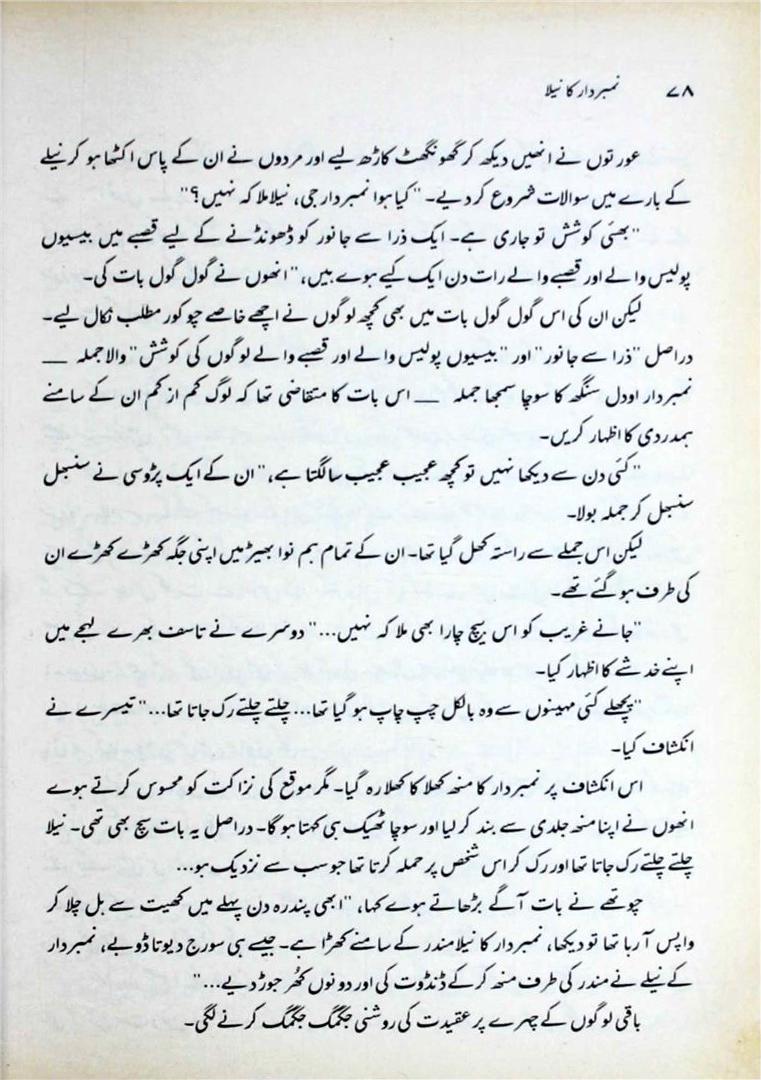 ۷۸ نمبردار کا نیلا
عورتوں نے انھیں دیکھ کر گھونگھٹ کاڑھ لیے اور مردوں نے ان کے پاس اکٹھا ہو کر نیلے
کے بارے میں سوالات شروع کر دیے۔ "کیا ہوا نمبردار جی، نیلا ملا کہ نہیں؟"
"بھئی کوشش تو جاری ہے۔ ایک ذرا سے جانور کو ڈھونڈنے کے لیے قصبے میں بیسیوں
پولیس والے اور قصبے والے رات دن ایک کیے ہوے ہیں،" انھوں نے گول گول بات کی۔
لیکن ان کی اس گول گول بات میں بھی کچھ لوگوں نے اچھے خاصے چوکور مطلب نکال لیے۔
دراصل "ذرا سے جانور" اور "بیسیوں پولیس والے اور قصبے والے لوگوں کی کوشش" والا جملہ __
نمبردار اودل سنگھ کا سوچا سمجھا جملہ __ اس بات کا متقاضی تھا کہ لوگ کم از کم ان کے سامنے
ہمدردی کا اظہار کریں۔
"کئی دن سے دیکھا نہیں تو کچھ عجیب عجیب سا لگتا ہے،" ان کے ایک پڑوسی نے سنبھل
سنبھل کر جملہ بولا۔
لیکن اس جملے سے راستہ کھل گیا تھا۔ ان کے تمام ہم نوا بھیڑ میں اپنی جگہ کھڑے کھڑے ان
کی طرف ہو گئے تھے۔
"جانے غریب کو اس بیچ چارا بھی ملا کہ نہیں..." دوسرے نے تاسف بھرے لہجے میں
اپنے خدشے کا اظہار کیا۔
"پچھلے کئی مہینوں سے وہ بالکل چپ چاپ ہو گیا تھا... چلتے چلتے رک جاتا تھا..." تیسرے نے
انکشاف کیا۔
اس انکشاف پر نمبردار کا منھ کھلا کا کھلا رہ گیا۔ مگر موقع کی نزاکت کو محسوس کرتے ہوے
انھوں نے اپنا منھ جلدی سے بند کر لیا اور سوچا ٹھیک ہی کہتا ہو گا۔ دراصل یہ بات سچ بھی تھی۔ نیلا
چلتے چلتے رک جاتا تھا اور رک کر اس شخص پر حملہ کرتا تھا جو سب سے نزدیک ہو...
چوتھے نے بات آگے بڑھاتے ہوے کہا، "ابھی پندرہ دن پہلے میں کھیت سے بل چلا کر
واپس آ رہا تھا تو دیکھا، نمبردار کا نیلا مندر کے سامنے کھڑا ہے۔ جیسے ہی سورج دیوتا ڈوبے، نمبردار
کے نیلے نے مندر کی طرف منھ کر کے ڈنڈوت کی اور دونوں کھُر جوڑ دیے..."
باقی لوگوں کے چہرے پر عقیدت کی روشنی جگمگ جگمگ کرنے لگی۔